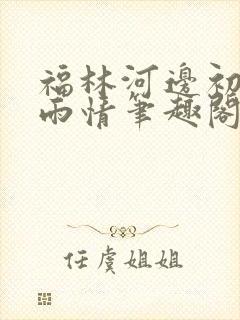 福林河邊初
雨情筆趣閣
任虞姐姐